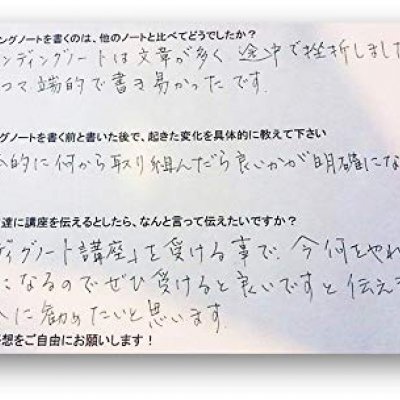 ングノートを書くのは、他のノートと比べてどうでしたか？
ンディングノートは文章が多く 途中で挫折しました
つで端的で書き易かったです。
グノートを書く前と書いた後で、起きた変化を具体的に教えて下さい
的に何から取り組んだら良いかが明確にな
達に講座を伝えるとしたら、なんと言って伝えたいですか？
ディグノート講座」を受ける事で、今何をやれ
になるのでぜひ受けると良いですと伝え
に勧めたいと思います。
想をご自由にお願いします！